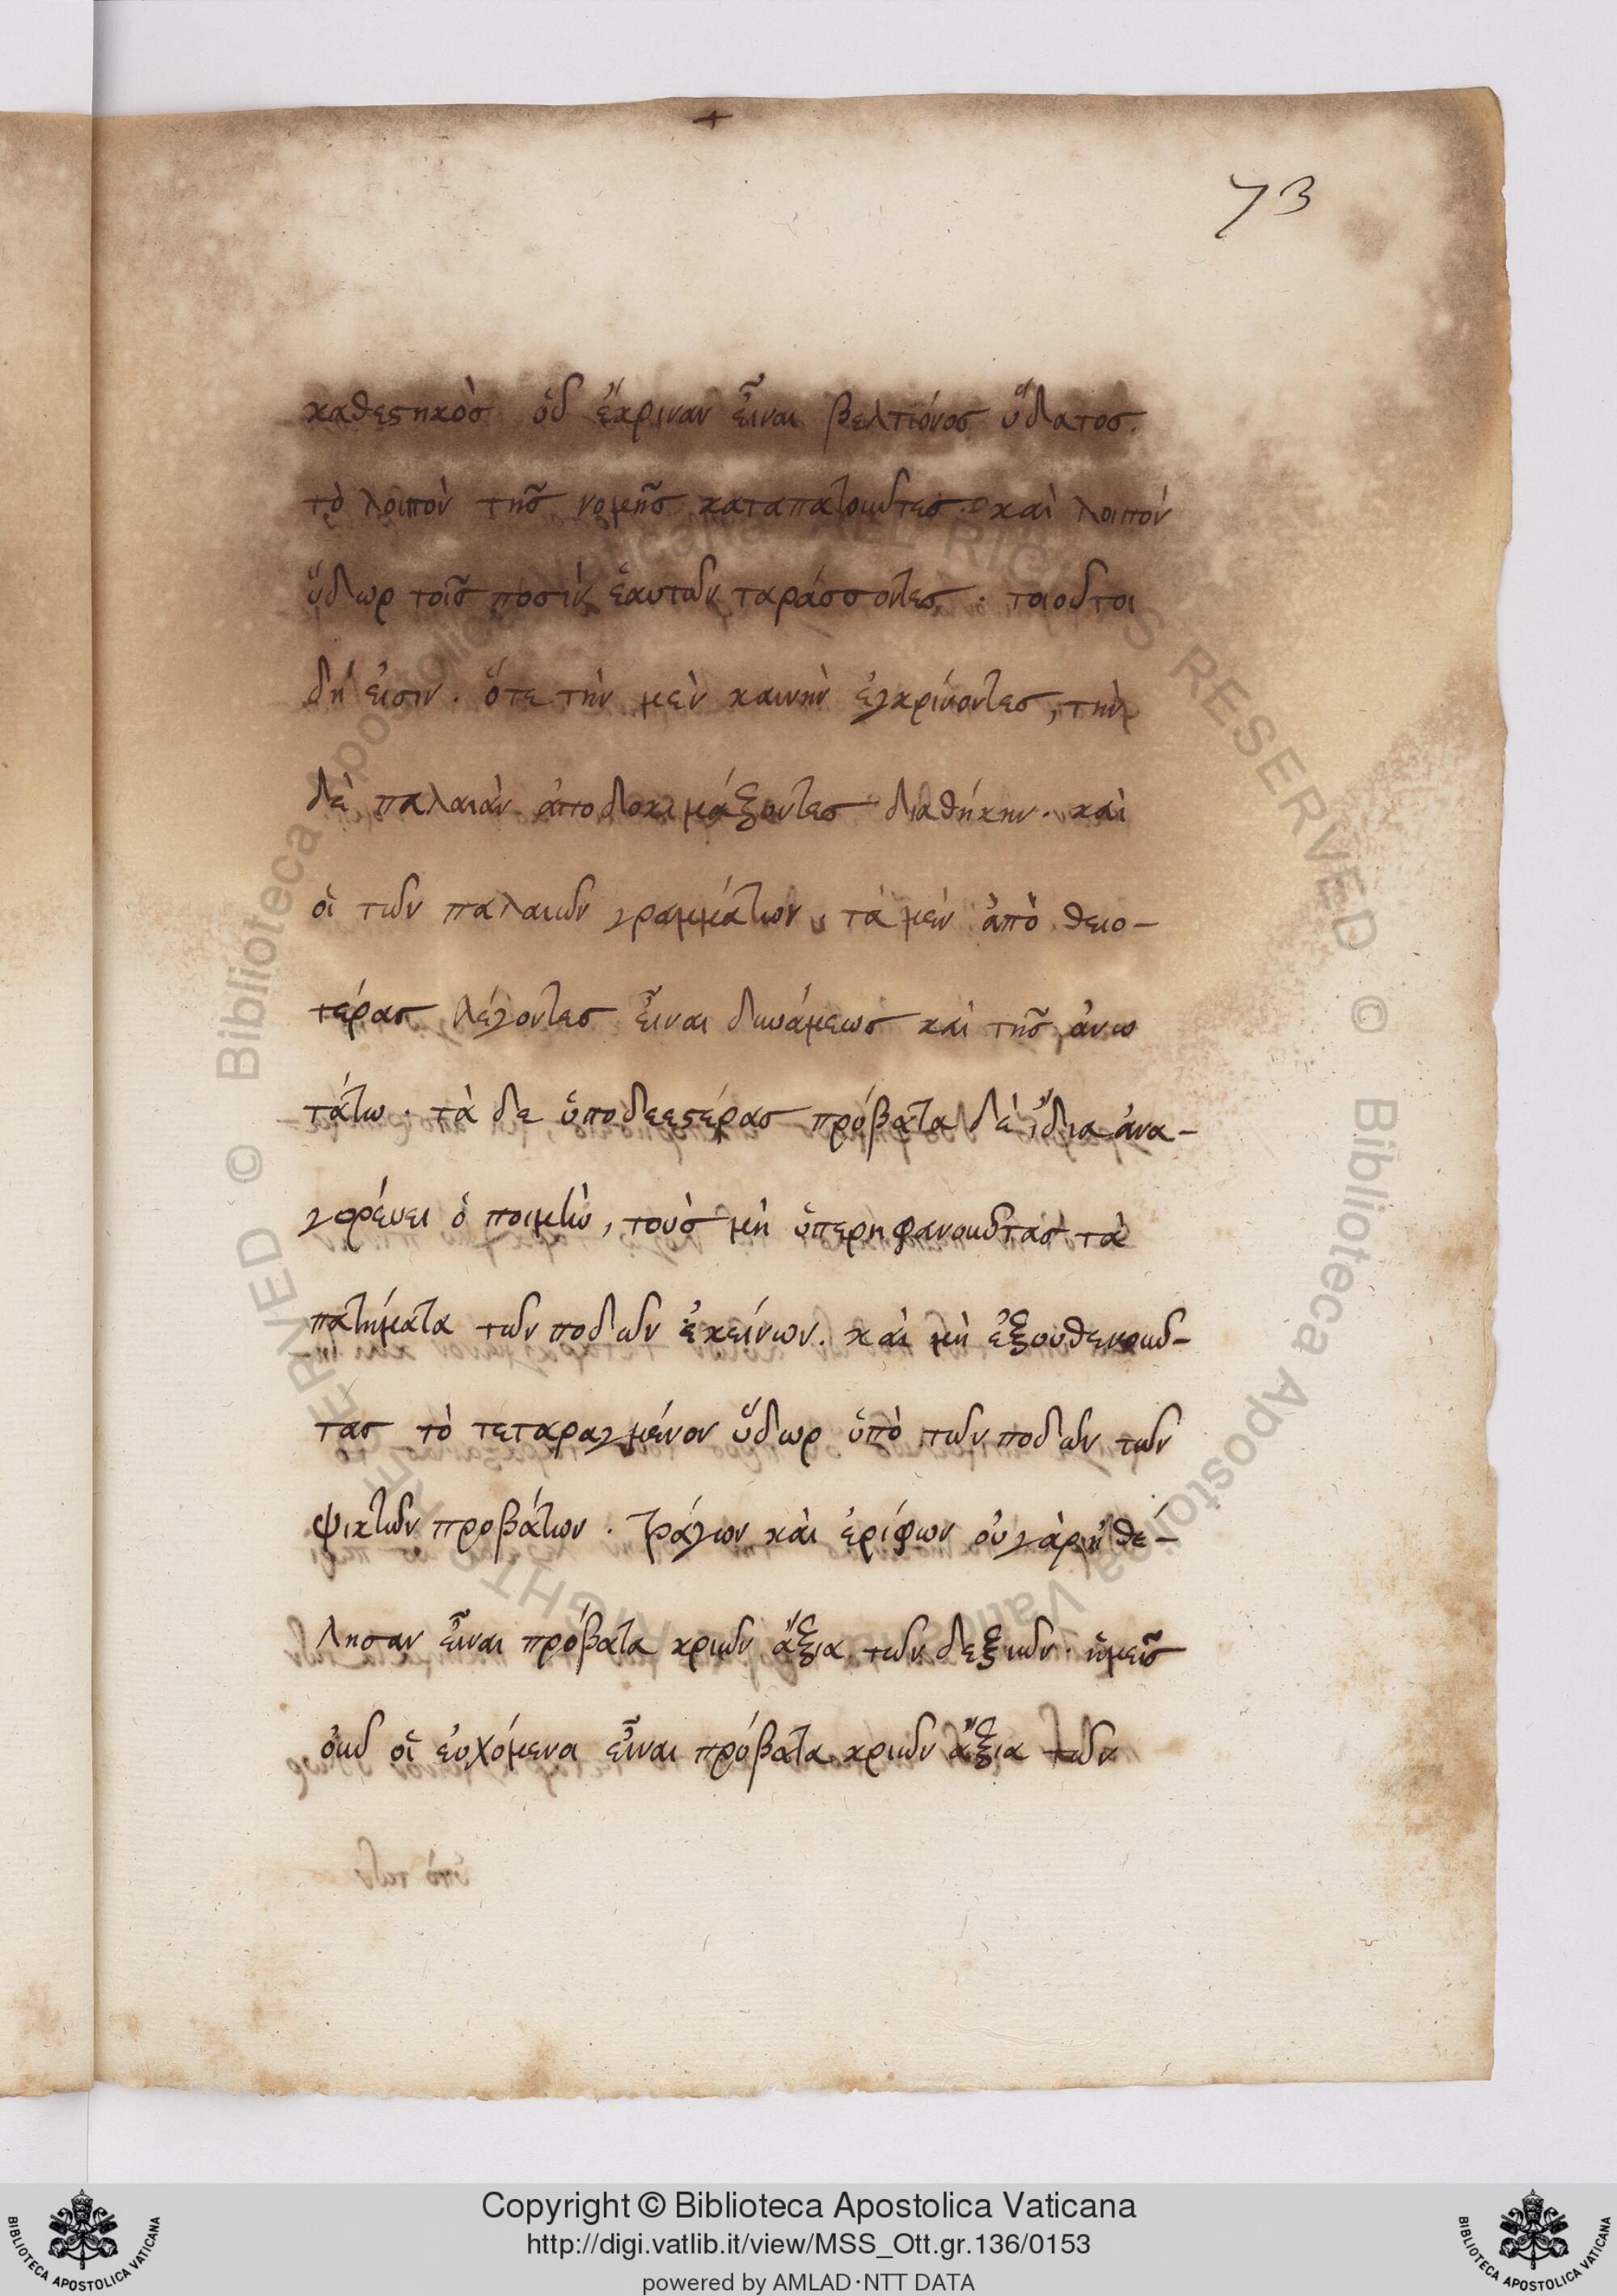 73
καθεστηκὸς οὗ ἔκριναν εἶναι βελτιόνος ὕδατος.
τὸ λοιπὸν τῆς νομῆς καταπατοῦντες. καὶ λοιπὸν
ὕδωρ τοῖς ποσὶν ἑαυτῶν ταράσσοντες. τοιοῦτοι
δή εἰσιν. ὅτε τὴν μὲν καινὴν ἐγκρίνοντες, τὴν
δὲ παλαιὰν ἀποδοκιμάζοντες διαθήκην. καὶ
οἱ τῶν παλαιῶν γραμμάτων, τὰ μὲν ἀπὸ θειο-
τέρας λέγοντες εἶναι δυνάμεως καὶ τῆς ἀνω
τάτω. τὰ δε ὑποδεεστέρας πρόβατα δὲ ἴδια ἀνα-
γορεύει ὁ ποιμὴν, τοὺς μὴ ὑπερηφανοῦντας τὰ
πατήματα τῶν ποδῶν ἐκείνων. καὶ μὴ ἐξουθενοῦν-
τας τὸ τεταραγμένον ὕδωρ ὑπὸ τῶν ποδῶν τῶν
ψικτῶν προβάτων. τράγων καὶ ἐρίφων οὐ γὰρ ἠθέ-
λησαν εἶναι πρόβατα κριῶν ἄξια τῶν δεξιῶν. ἡμεῖς
οὖν οἱ εὐχόμενοι εἶναι πρόβατα κριῶν ἄξια τῶν
Copyright © Biblioteca Apostolica Vaticana
http://digi.vatlib.it/view/MSS_Ott.gr.136/0153
powered by AMLAD·NTT DATA
BIBLIOTECA APOSTOLICA VATICANA
BIBLIOTECA APOSTOLICA VATICANA
© Biblioteca Apostolica Vaticana ALL RIGHTS RESERVED © Biblioteca Apostolica Vaticana ALL RIGHTS RESERVED